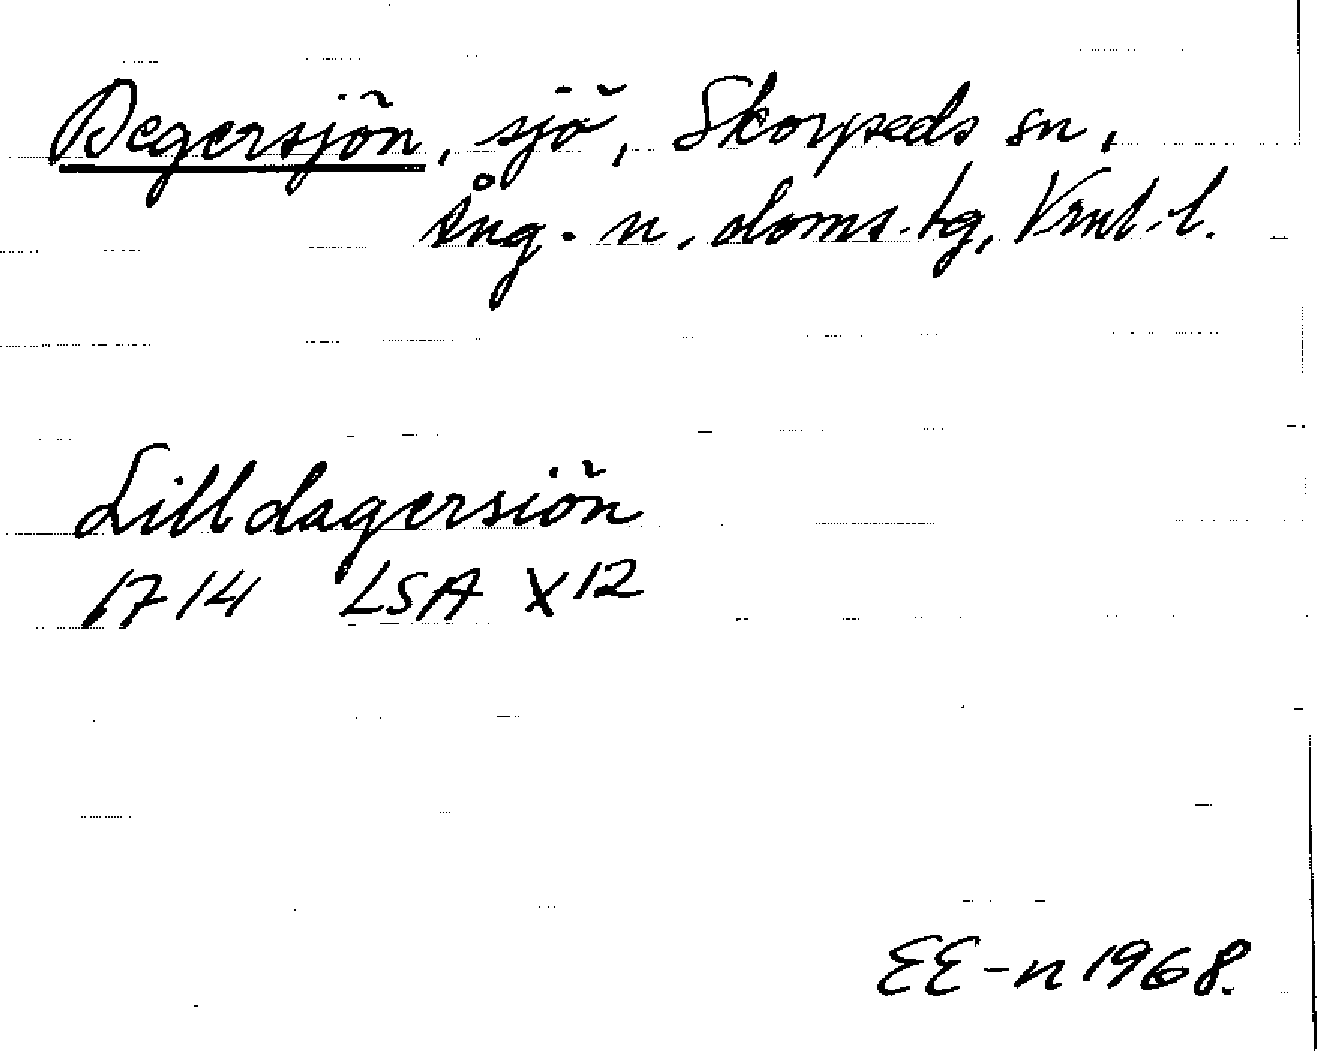 Degersjön, sjö, Skorpeds sn,
Ång. n. doms. tg, Vrnl. l.
Lilldagersiön
1714 LSA X12
EE-n 1968.